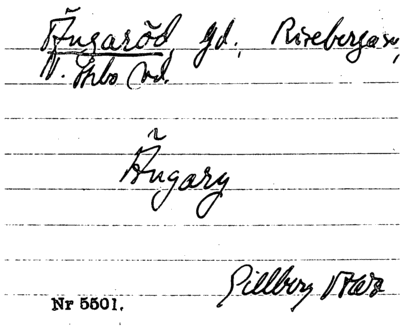 Ängaröd, gd., Riseberga sn,
N. Åsbo hd.
Ängary
Gillberg
Nr 5501.